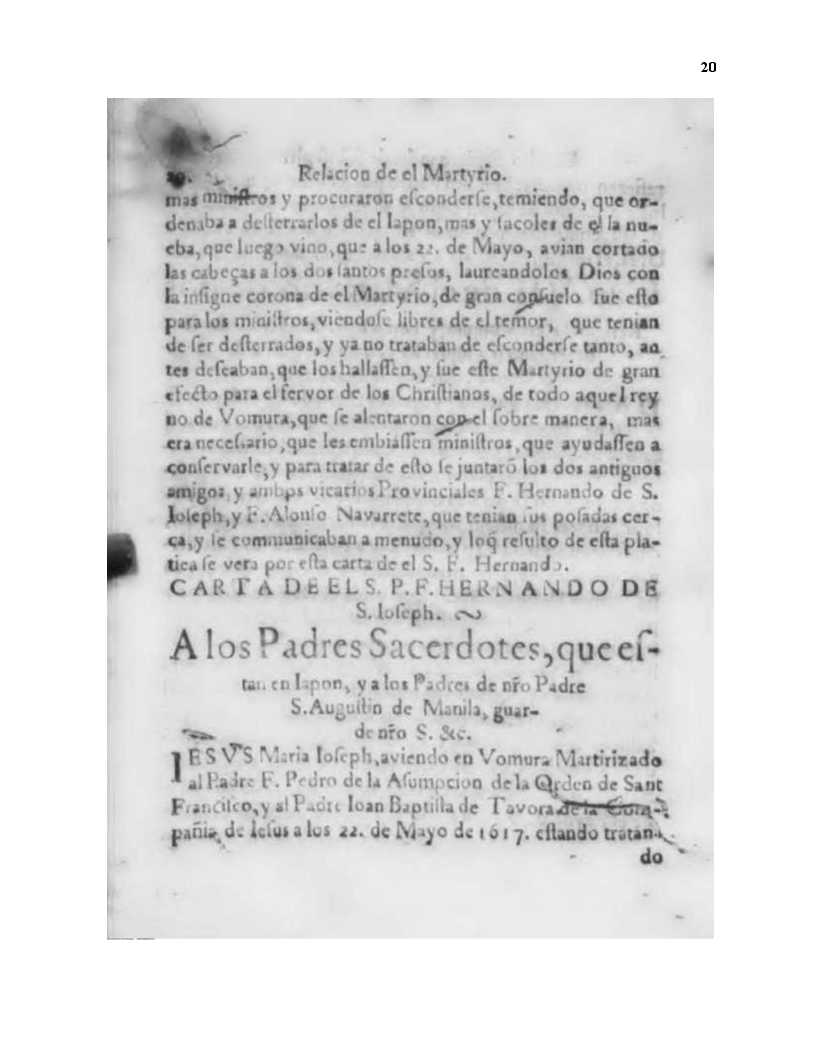 20
20. Relacion de el Martyrio.
mas miniſtros y procuraron eſconderſe,temiendo, que or-
denaba a deſterrarlos de el Iapon,mas y ſacoles de el la nu-
eba,que luego vino,que a los 22. de Mayo, avian cortado
las cabeças a los dos ſantos preſos, laureandoles Dios con
la inſigne corona de el Martyrio,de gran conſuelo fue eſto
para los miniſtros,viendoſe libres de el temor, que tenian
de ſer deſterrados,y ya no trataban de eſconderſe tanto, an
tes deſeaban,que los hallaſſen,y fue eſte Martyrio de gran
efecto para el fervor de los Chriſtianos, de todo aquel rey
no de Vomura,que ſe alentaron con el ſobre manera, mas
era neceſſario,que les embiaſſen miniſtros,que ayudaſſen a
conſervarle,y para tratar de eſto ſe juntarõ los dos antiguos
amigos,y ambos vicarios Provinciales F. Hernando de S.
Ioſeph,y F. Alonſo Navarrete,que tenian ſus poſadas cer-
ca,y ſe communicaban a menudo,y loq̃ reſulto de eſta pla-
tica ſe vera por eſta carta de el S. F. Hernando.
CARTA DE EL S. P. F. HERNANDO DE
S. Ioſeph.
A los Padres Sacerdotes,que eſ-
tan en Iapon, y a los Padres de nr̃o Padre
S.Auguſtin de Manila, guar-
de nr̃o S. &c.
IESVS Maria Ioſeph,aviendo en Vomura Martirizado
al Padre F. Pedro de la Aſumpcion de la Orden de Sant
Franciſco,y al Padre Ioan Baptiſta de Tavora de la Com-
pañia de Ieſus a los 22. de Mayo de 1617. eſtando tratan-
do